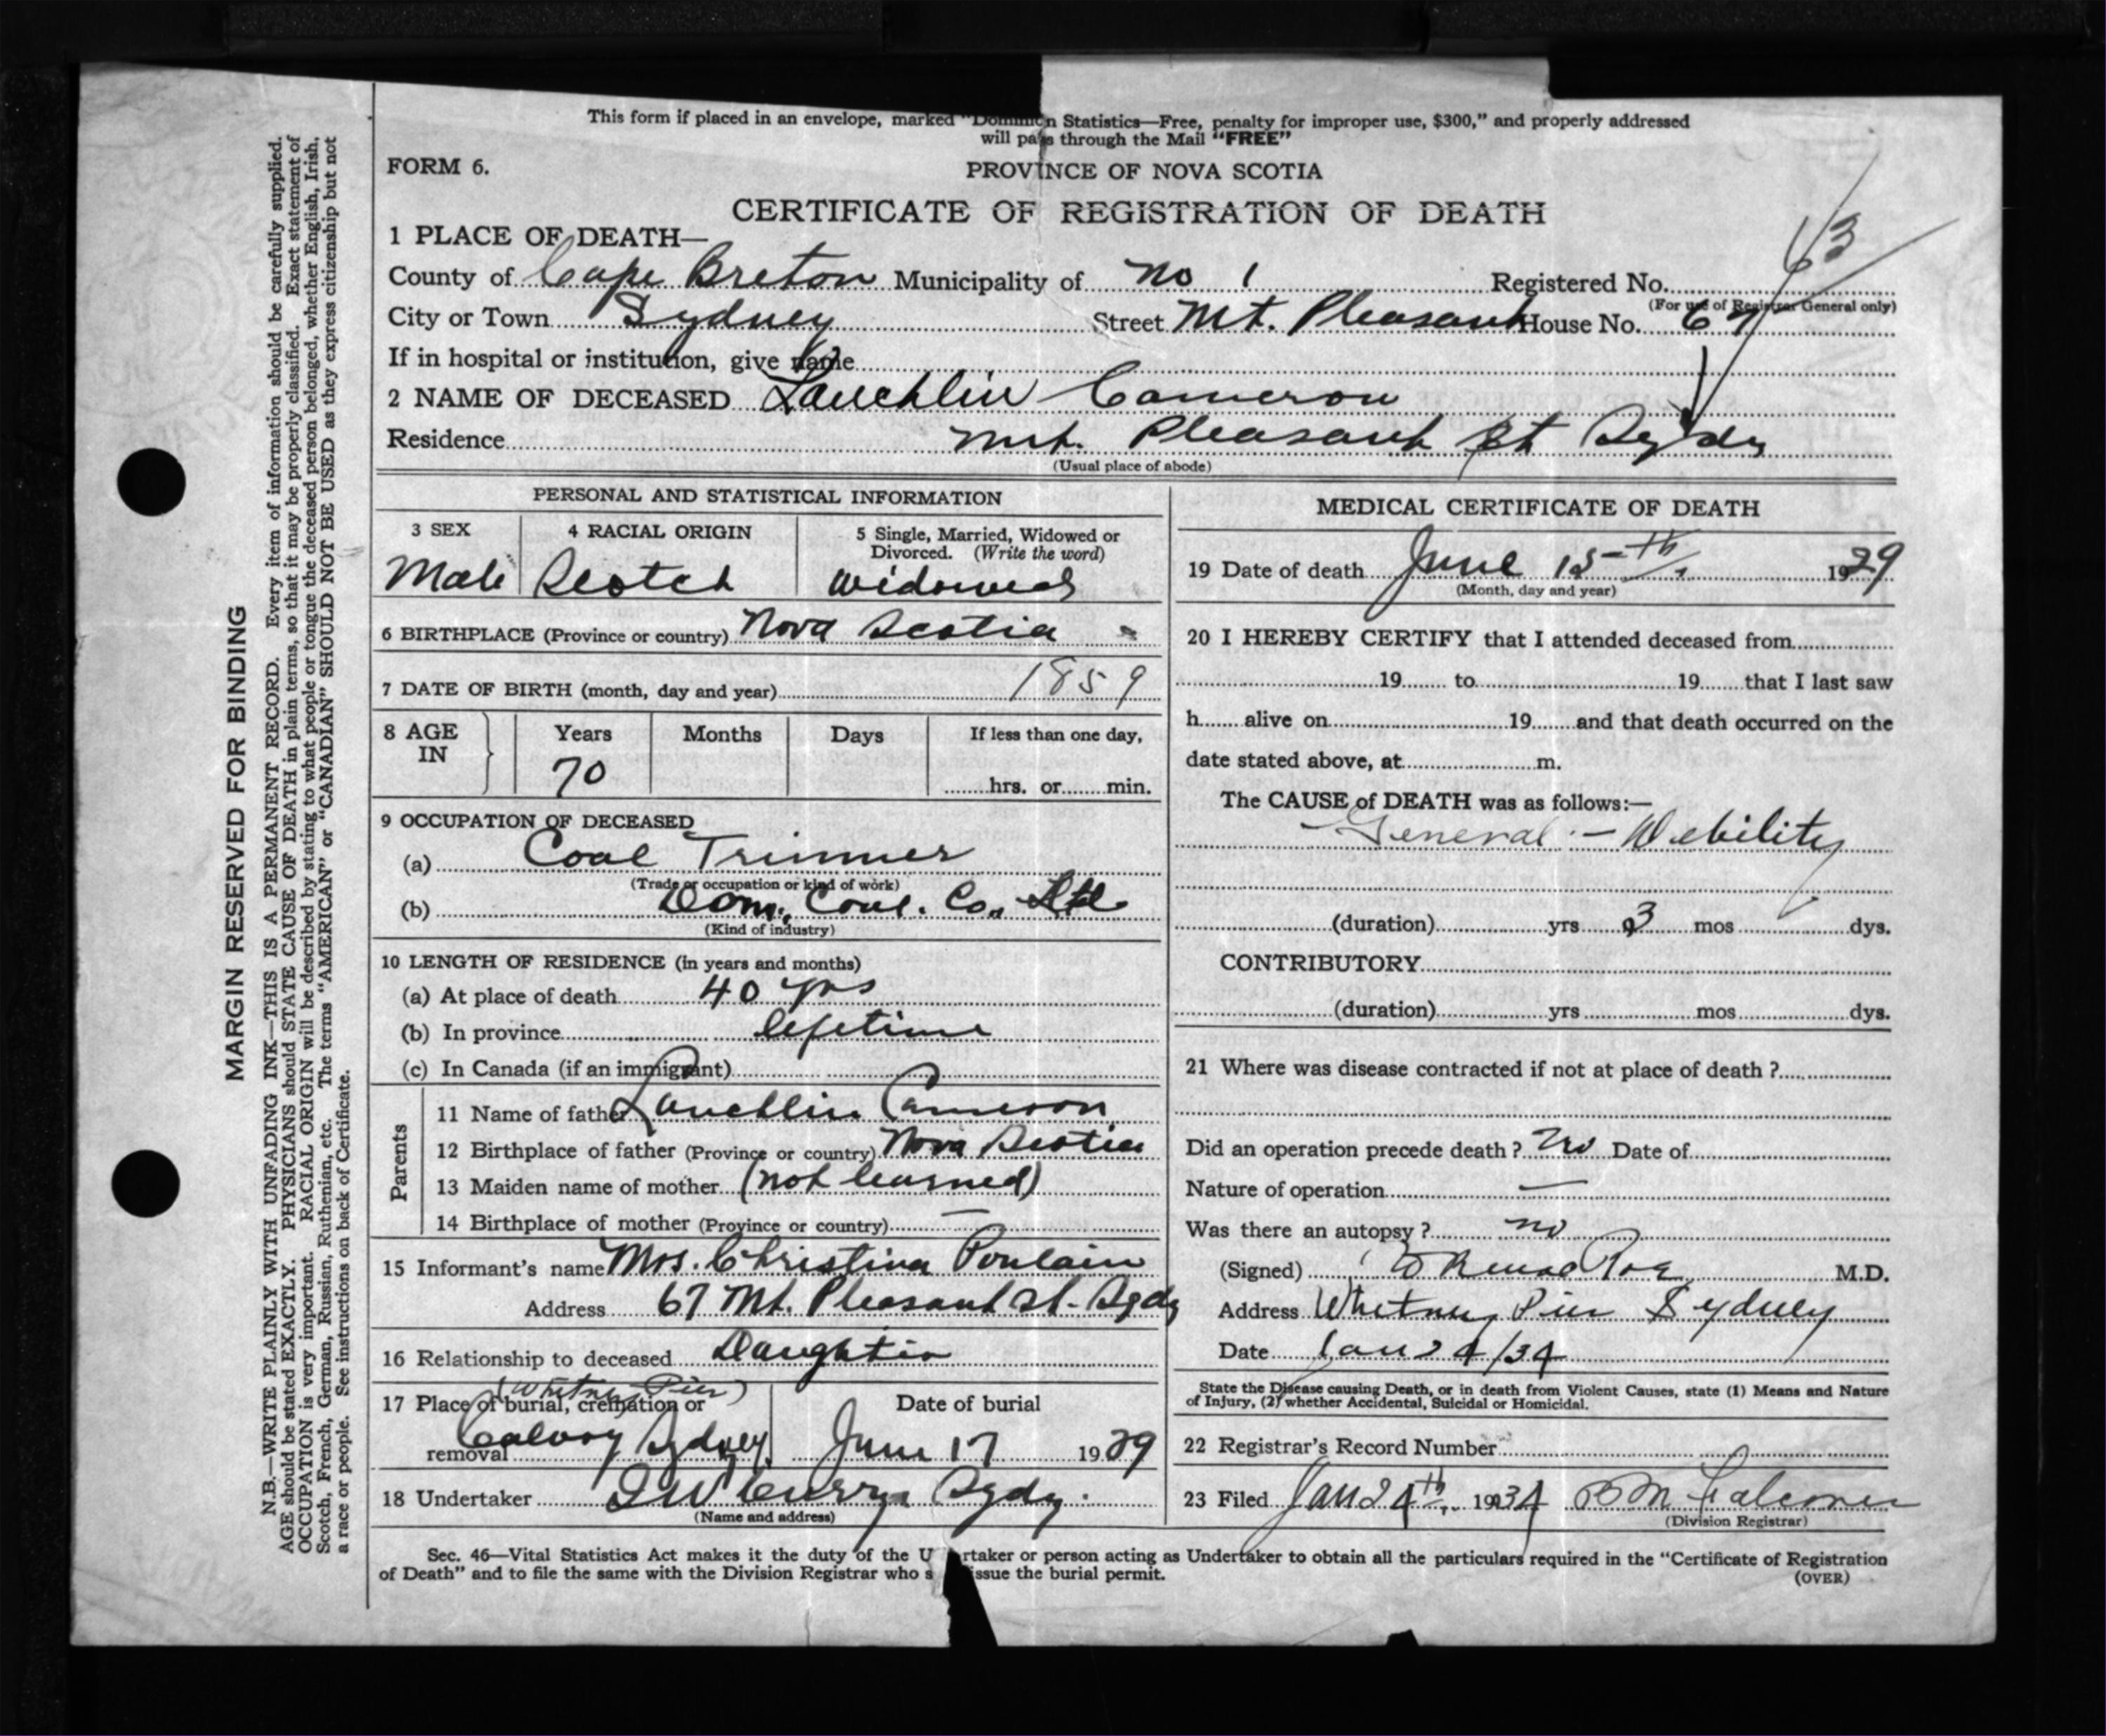 This form if placed in an envelope, marked "Dominion Statistics—Free, penalty for improper use, $300," and properly addressed
will pass through the Mail "FREE"
FORM 6.
PROVINCE OF NOVA SCOTIA
CERTIFICATE OF REGISTRATION OF DEATH
1 PLACE OF DEATH—
63
County of Cape Breton Municipality of No 1 Registered No.
(For use of Registrar General only)
City or Town Sydney Street Mt. Pleasant House No. 67
If in hospital or institution, give name
2 NAME OF DECEASED Lauchlin Cameron
Residence Mt. Pleasant St Sydy
(Usual place of abode)
PERSONAL AND STATISTICAL INFORMATION
3 SEX 4 RACIAL ORIGIN 5 Single, Married, Widowed or
Divorced. (Write the word)
Male Scotch Widowed
6 BIRTHPLACE (Province or country) Nova Scotia
7 DATE OF BIRTH (month, day and year) 1859
8 AGE IN Years Months Days If less than one day,
70 hrs. or min.
9 OCCUPATION OF DECEASED
(a) Coal Trimmer
(Trade or occupation or kind of work)
(b) Dom. Coal. Co., Ltd
(Kind of industry)
10 LENGTH OF RESIDENCE (in years and months)
(a) At place of death 40 yrs
(b) In province lifetime
(c) In Canada (if an immigrant)
Parents
11 Name of father Lauchlin Cameron
12 Birthplace of father (Province or country) Nova Scotia
13 Maiden name of mother (not learned)
14 Birthplace of mother (Province or country) —
15 Informant's name Mrs. Christina Poulain
Address 67 Mt. Pleasant St. Sydy
16 Relationship to deceased Daughter
(Whitney Pier)
17 Place of burial, cremation or Date of burial
removal Calvary Sydney. June 17 1929
18 Undertaker Curry Sydy.
(Name and address)
MEDICAL CERTIFICATE OF DEATH
19 Date of death June 15th. 1929
(Month, day and year)
20 I HEREBY CERTIFY that I attended deceased from
19 to 19 that I last saw
h alive on 19 and that death occurred on the
date stated above, at m.
The CAUSE of DEATH was as follows:—
General:- Debility
(duration) yrs 3 mos dys.
CONTRIBUTORY
(duration) yrs mos dys.
21 Where was disease contracted if not at place of death ?
Did an operation precede death ? No Date of
Nature of operation —
Was there an autopsy ? no
(Signed) M.D.
Address Whitney Pier Sydney
Date Jan 24/34
State the Disease causing Death, or in death from Violent Causes, state (1) Means and Nature
of Injury, (2) whether Accidental, Suicidal or Homicidal.
22 Registrar's Record Number
23 Filed Jan 24th. 1934 Falconer
(Division Registrar)
Sec. 46—Vital Statistics Act makes it the duty of the U rtaker or person acting as Undertaker to obtain all the particulars required in the "Certificate of Registration
of Death" and to file the same with the Division Registrar who s issue the burial permit.
(OVER)
MARGIN RESERVED FOR BINDING
N.B.—WRITE PLAINLY WITH UNFADING INK—THIS IS A PERMANENT RECORD. Every item of information should be carefully supplied.
AGE should be stated EXACTLY. PHYSICIANS should STATE CAUSE OF DEATH in plain terms, so that it may be properly classified. Exact statement of
OCCUPATION is very important. RACIAL ORIGIN will be described by stating to what people or tongue the deceased person belonged, whether English, Irish,
Scotch, French, German, Russian, Ruthenian, etc. The terms "AMERICAN" or "CANADIAN" SHOULD NOT BE USED as they express citizenship but not
a race or people. See instructions on back of Certificate.